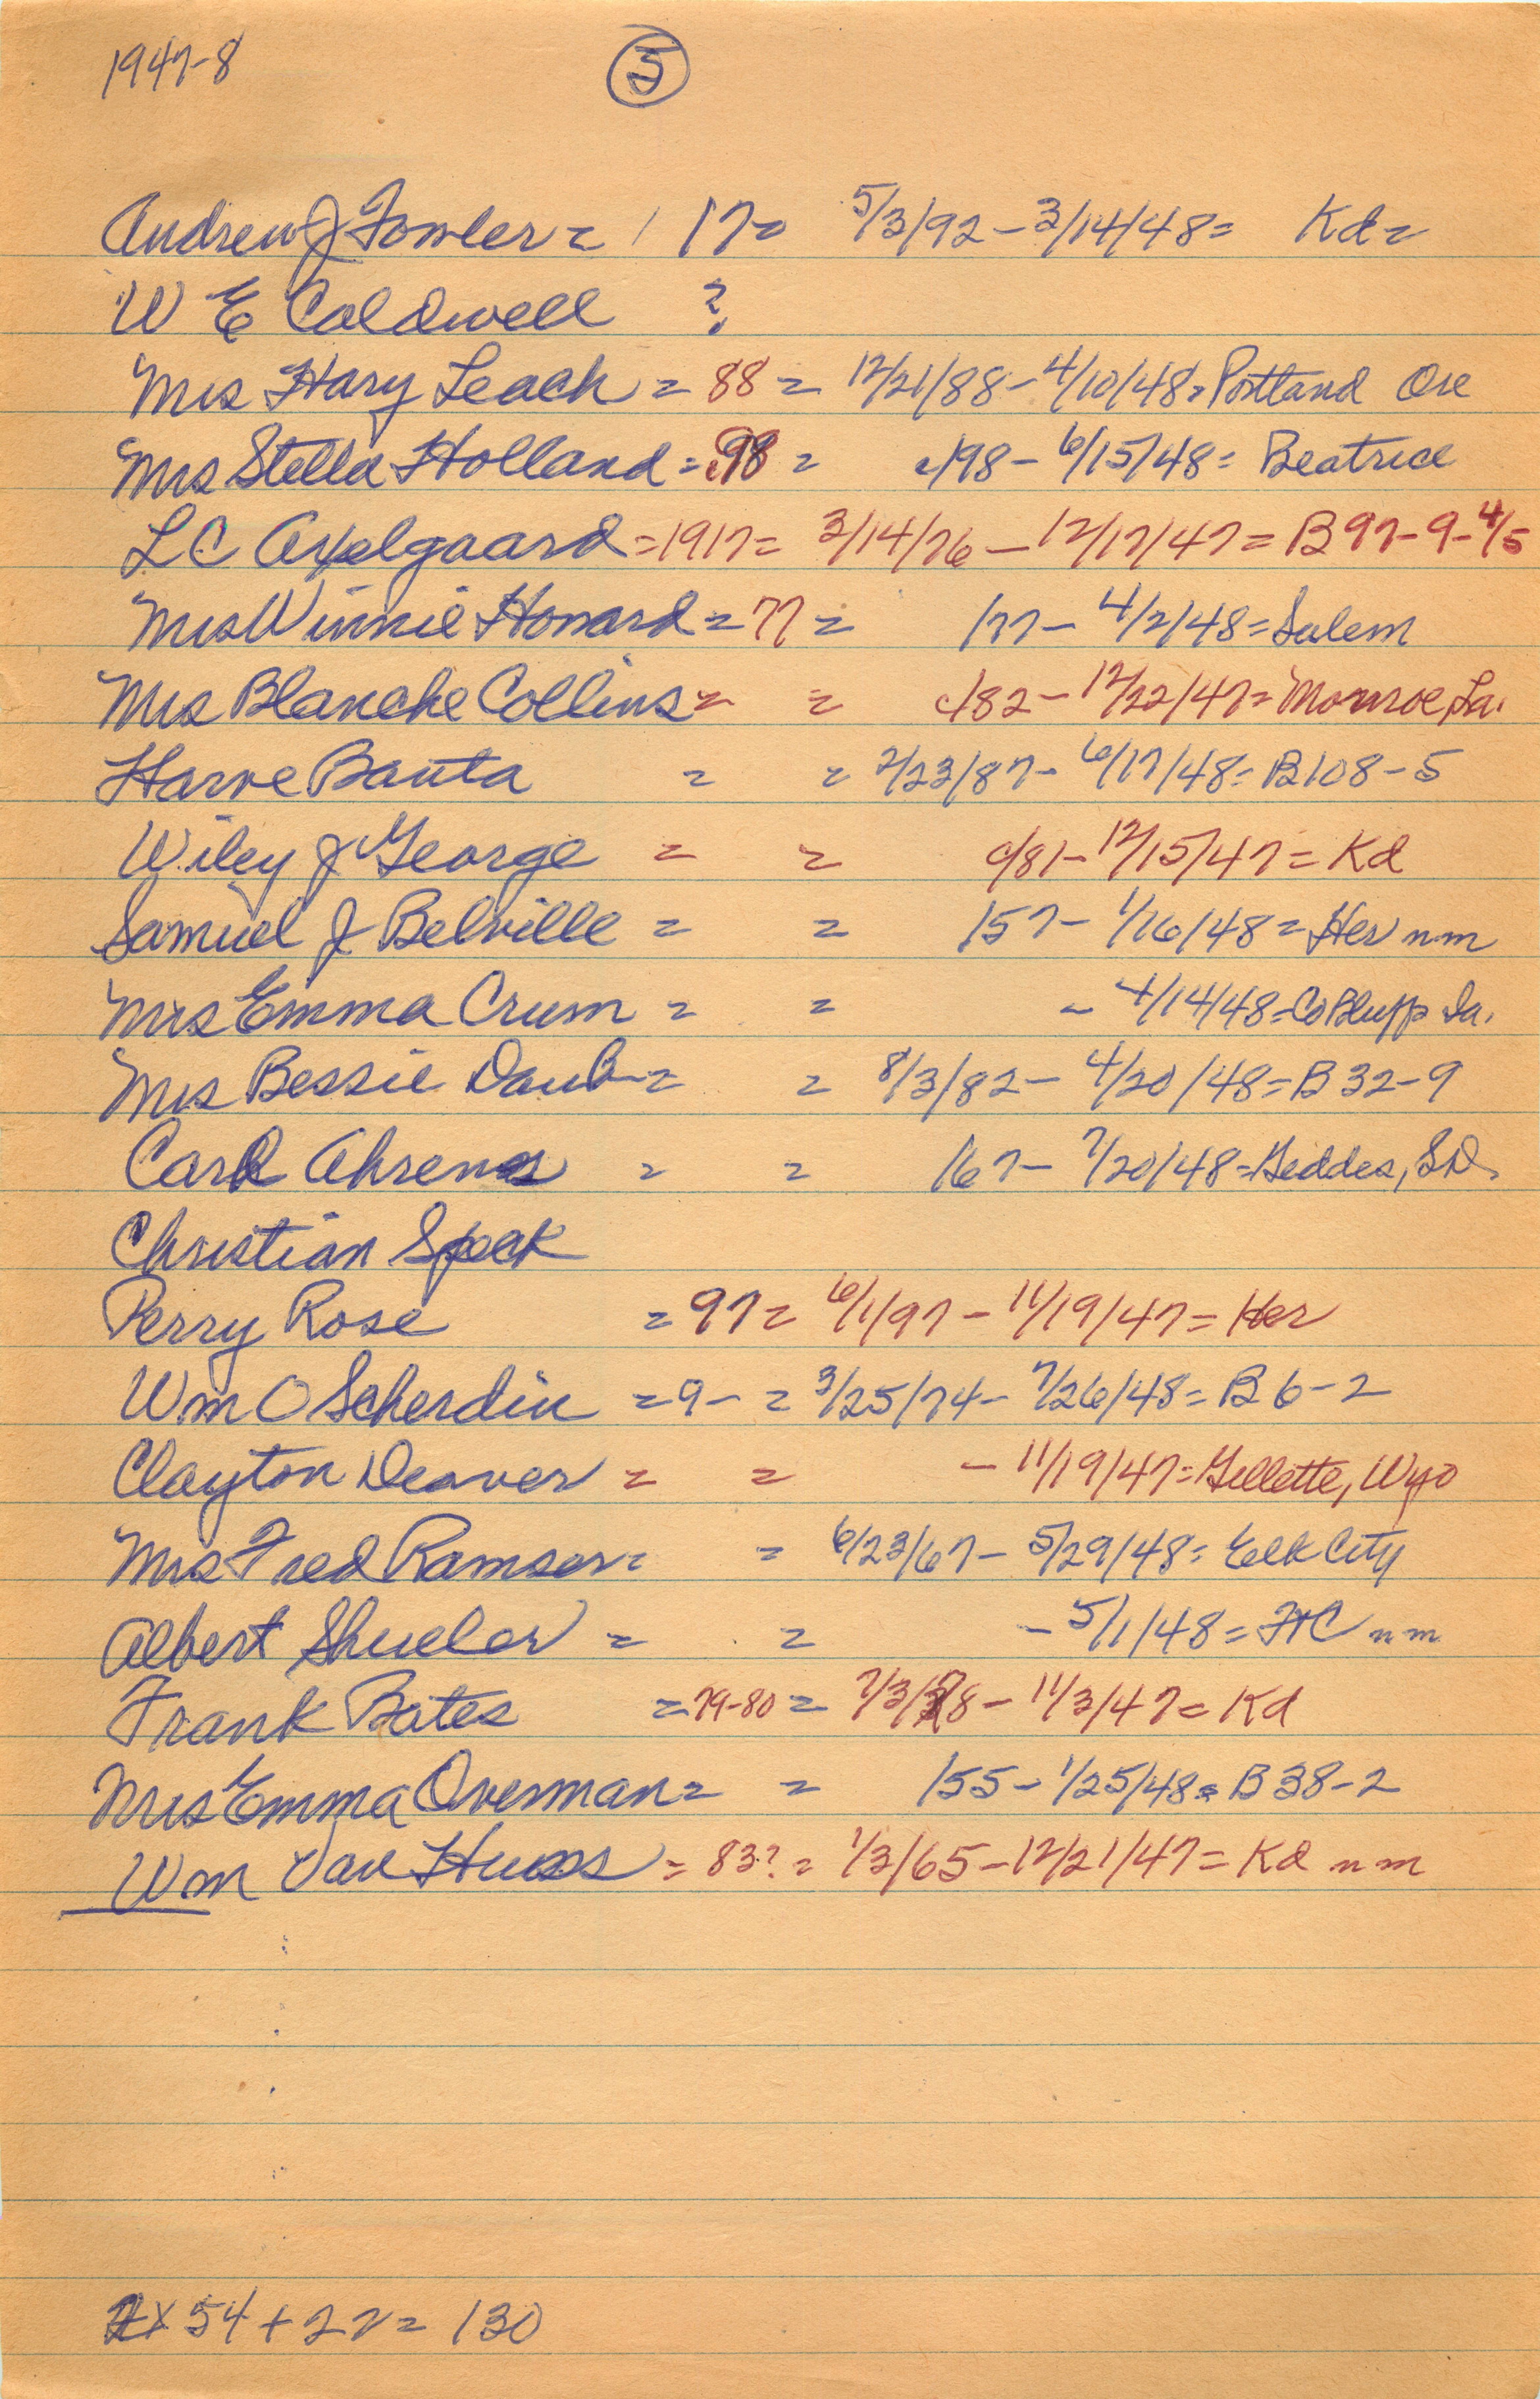 1947-8
5
Andrew J Fowler = 17 = 5/3/92 - 3/14/48 = Kd =
W E Caldwell ?
Mrs Hary Leach = 88 = 12/21/88 - 4/10/48 = Portland Ore
Mrs Stella Holland = 98 = c/98 - 6/15/48 = Beatrice
L C Axelgaard = 1917 = 3/14/76 - 12/17/47 = B 97-9-4/5
Mrs Winnie Howard = 77 = /77 - 4/2/48 = Salem
Mrs Blanche Collins = = c/82 - 12/22/47 = Monroe, La.
Harve Banta = = 2/23/87 - 6/17/48 = B108-5
Wiley J George = = c/81 - 12/15/47 = Kd
Samuel J Belville = = /57 - 1/16/48 = Her nm
Mrs Emma Crum = = - 4/14/48 = Co Bluff Ia.
Mrs Bessie Daub = = 8/3/82 - 4/20/48 = B 32-9
Carl Ahrens = = /67 - 7/20/48 = Geddes, S.D.
Christian Speck
Perry Rose = 97 = 6/1/97 - 11/19/47 = Her
Wm O Scherdin = 9- = 3/25/74 - 7/26/48 = B 6-2
Clayton Deaver = = - 11/19/47 = Gillette, Wyo
Mrs Fred Ramser = = 6/23/67 - 5/29/48 = Elk City
Albert Shueler = = - 5/1/48 = FtC nm
Frank Bates = 79-80 = 7/3/78 - 11/3/47 = Kd
Mrs Emma Overman = = /55 - 1/25/48 = B 38-2
Wm Van Huss = 83? = 1/3/65 - 12/21/47 = Kd nm
2 x 54 + 22 = 130